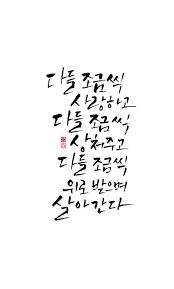 다들 조금씩
사랑하고
다들 조금씩
상처주고
다들 조금씩
위로 받으며
살아간다